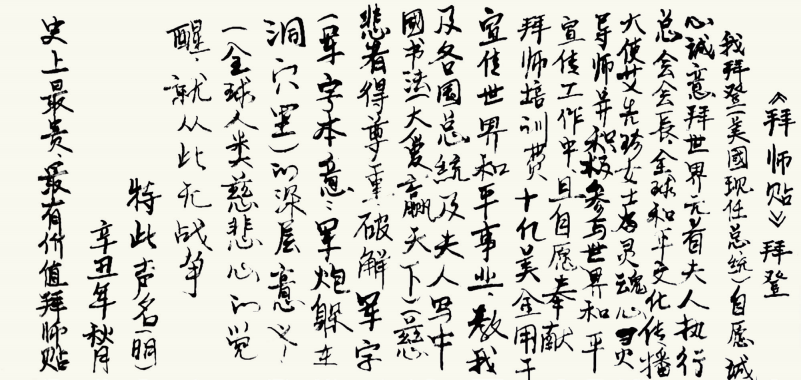 《拜师贴》拜登
我拜登(美國现任总統)自愿诚
心诚意拜世界元首夫人执行
总会会長、全球和平文化传播
大使艾先珍女士为灵魂心灵
导师并积极参与世界和平
宣传工作中且自愿奉献
拜师培训费十亿美金用于
宣传世界和平事业、教我
及各国总统及夫人写中
國书法(大爱赢天下)(慈
悲者得尊重)破解军字
(军字本意:军炮躲在
洞穴里)的深层意义!
(全球人类慈悲心的觉
醒,就从此无战争
特此声名(明)
辛丑年秋月
史上最贵、最有价值拜师贴